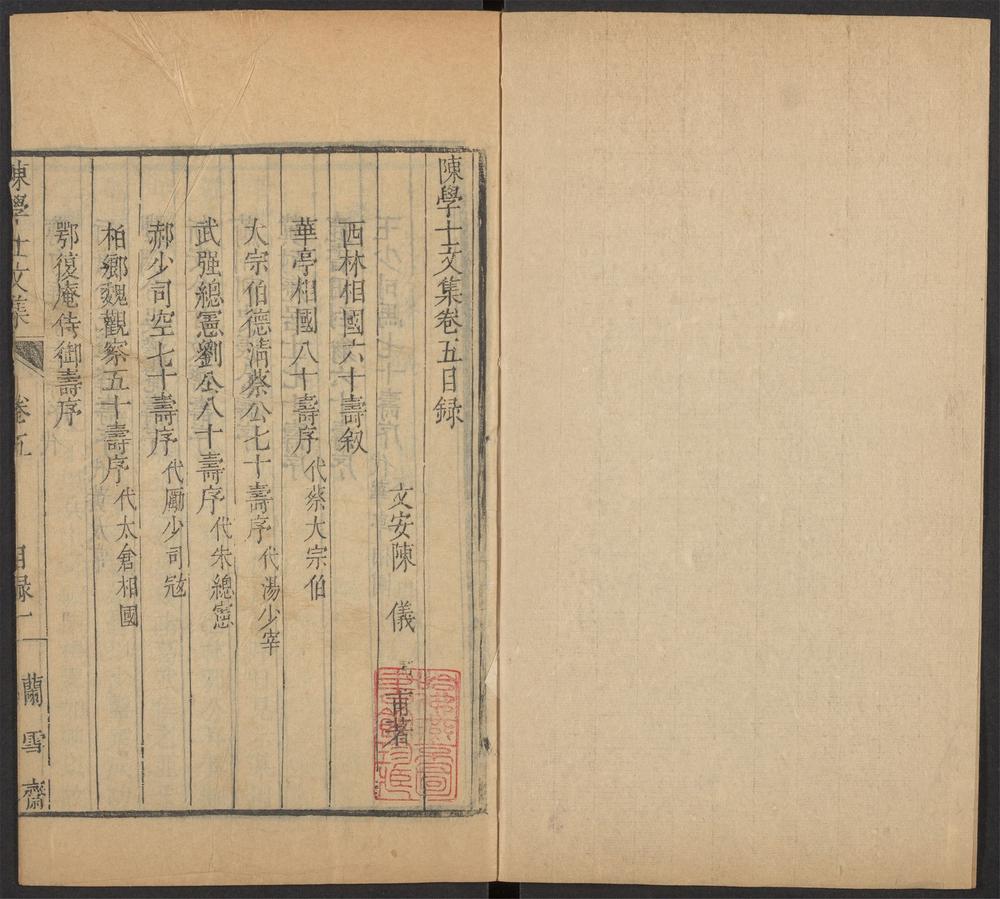 陳學士文集卷五目録
文安陳 儀 甫著
西林相國六十壽叙
華亭相國八十壽序 代蔡大宗伯
大宗伯德清蔡公七十壽序 代湯少宰
武强總憲劉公八十壽序 代朱總憲
郝少司空七十壽序 代勵少司寇
柏鄉魏觀察五十壽序 代太倉相國
鄂復庵侍御壽序
陳學士文集 卷五 目録一 蘭雪齋